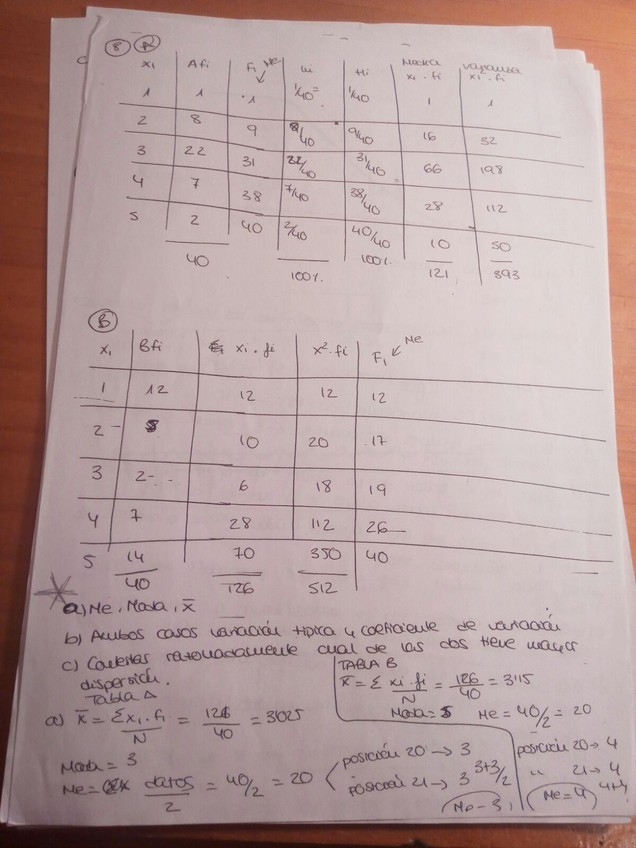 8 A
x₁ Afi F₁ Me hi Hi Media x₁·fi Varianza x₁²·fi
1 1 1 1/40= 1/40 1 1
2 8 9 8/40 9/40 16 32
3 22 31 22/40 31/40 66 198
4 7 38 7/40 38/40 28 112
5 2 40 2/40 40/40 10 50
40 100% 100% 121 393
B
x₁ Bfi x₁·fi x²·fi F₁ Me
1 12 12 12 12
2 5 10 20 17
3 2 6 18 19
4 7 28 112 26
5 14 70 350 40
40 126 512
a) Me, Moda, x̄
b) Ambos casos variación típica y coeficiente de variación
c) Contestar razonadamente cual de las dos tiene mayor
dispersión.
Tabla A
a) x̄ = Σx₁·fi/N = 126/40 = 3'025
Moda = 3
Me = datos/2 = 40/2 = 20
posición 20 → 3
posición 21 → 3 3+3/2
Me = 3
TABLA B
x̄ = Σ xi·fi/N = 126/40 = 3'15
Moda = 5 Me = 40/2 = 20
posición 20 → 4
" 21 → 4
Me = 4